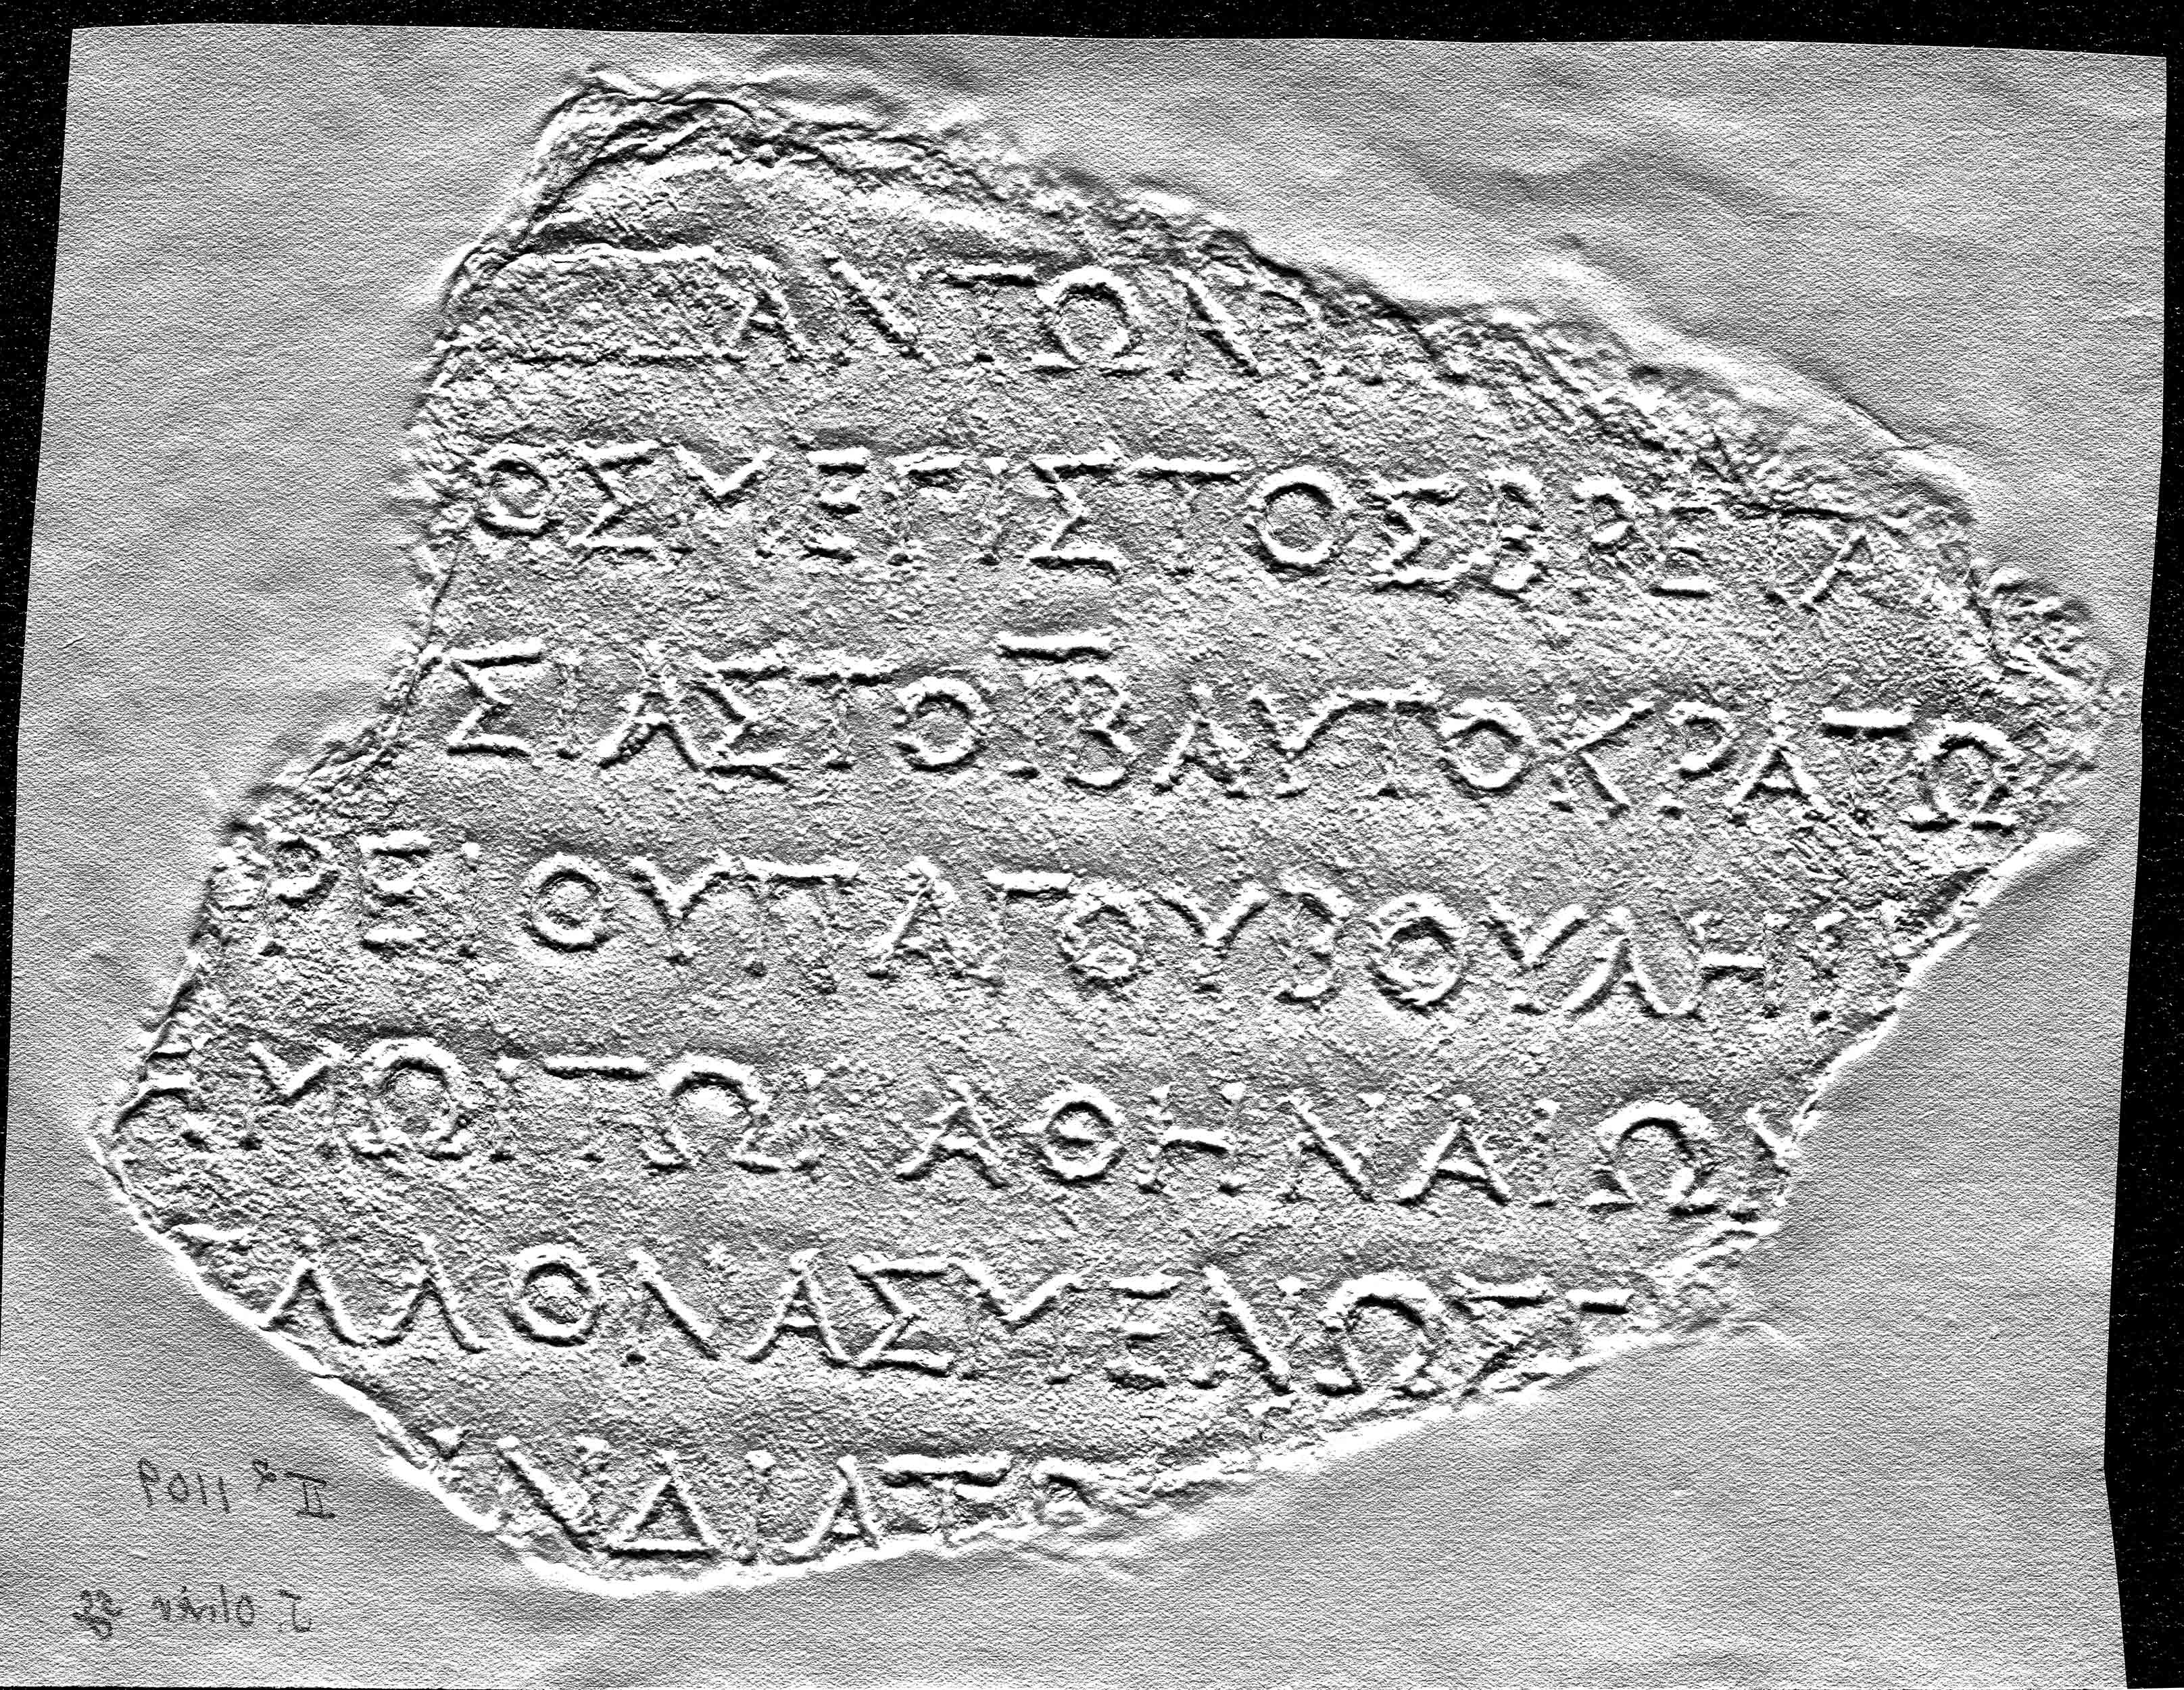 ΑΝΤΩΝ
ΟΣΜΕΓΙΣΤΟΣΒΡΕΤΑ
ΣΙΑΣΤΟΙΒΑΥΤΟΚΡΑΤΩ
ΡΕΙΟΥΠΑΓΟΥΒΟΥΛΗΙ
ΜΩΙΤΩΙΑΘΗΝΑΙΩΝ
ΛΛΟΝΑΣΜΕΝΩΣΤ
ΝΔΙΑΤΕ
II² 1109